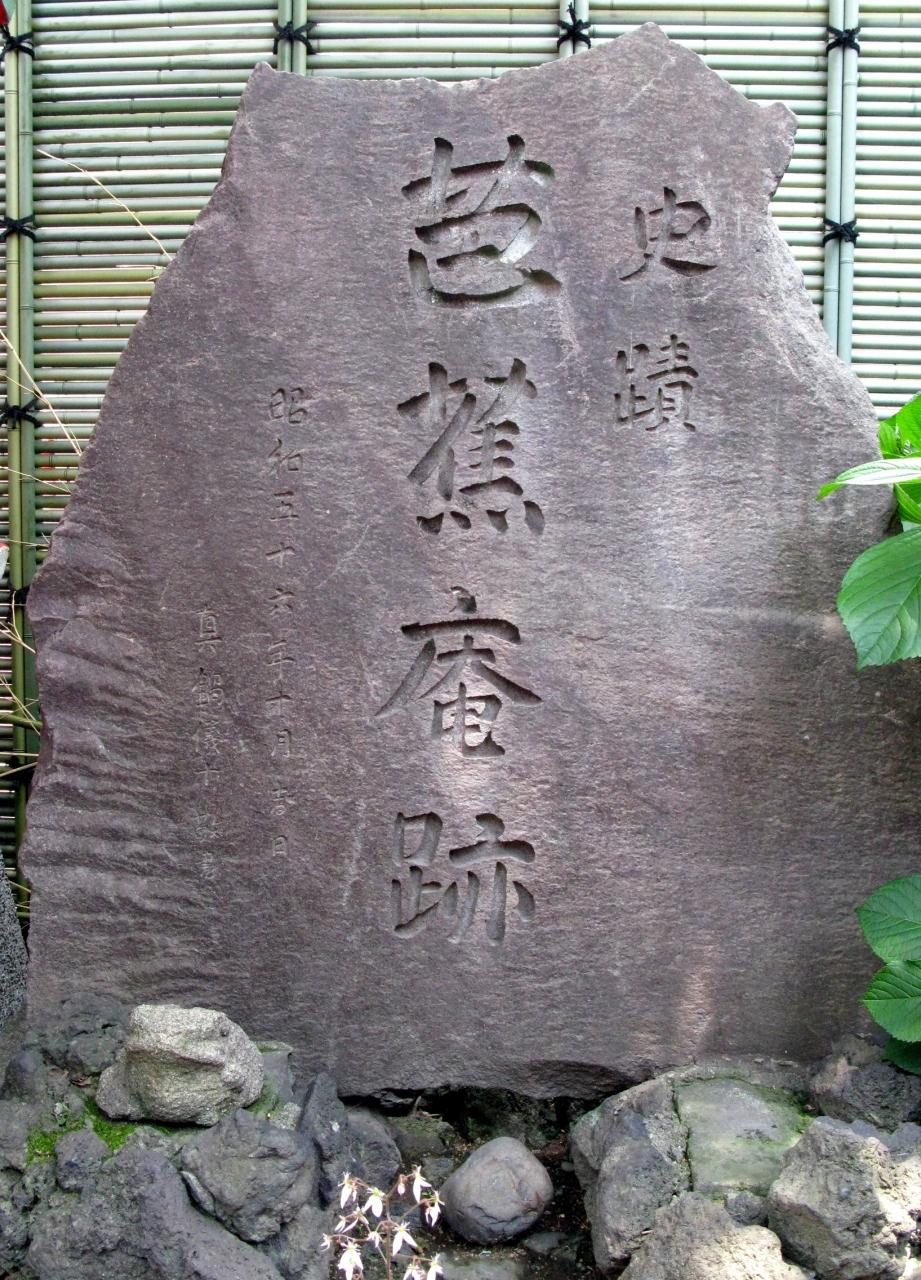 史蹟
芭蕉庵跡
昭和五十六年十月吉日
真鍋儀十書